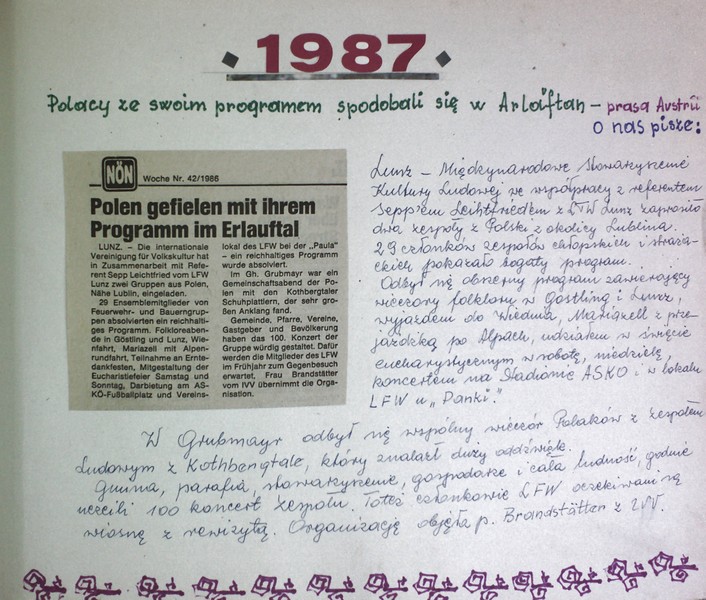 1987
Polacy ze swoim programem spodobali się w Arlaiftan – prasa Austrii
o nas pisze:
NÖN Woche Nr. 42/1986
Polen gefielen mit ihrem
Programm im Erlauftal
LUNZ. – Die internationale
Vereinigung für Volkskultur hat
in Zusammenarbeit mit Refe-
rent Sepp Leichtfried vom LFW
Lunz zwei Gruppen aus Polen,
Nähe Lublin, eingeladen.
29 Ensemblemitglieder von
Feuerwehr- und Bauerngrup-
pen absolvierten ein reichhalti-
ges Programm. Folkloreaben-
de in Göstling und Lunz, Wie-
nfahrt, Mariazell mit Alpen-
rundfahrt, Teilnahme an Ernte-
dankfesten, Mitgestaltung der
Eucharistiefeier Samstag und
Sonntag, Darbietung am AS-
KÖ-Fußballplatz und Vereins-
lokal des LFW bei der „Paula"
– ein reichhaltiges Programm
wurde absolviert.
Im Gh. Grubmayr war ein
Gemeinschaftsabend der Po-
len mit den Kothbergtaler
Schuhplattlern, der sehr gro-
ßen Anklang fand.
Gemeinde, Pfarre, Vereine,
Gastgeber und Bevölkerung
haben das 100. Konzert der
Gruppe würdig gestaltet. Dafür
werden die Mitglieder des LFW
im Frühjahr zum Gegenbesuch
erwartet, Frau Brandstätter
vom IVV übernimmt die Orga-
nisation.
Lunz – Międzynarodowe Stowarzyszenie
Kultury Ludowej we współpracy z referentem
Sepp'em Leihtfriedem z LFW Lunz zaprosiło
dwa zespoły z Polski z okolicy Lublina.
29 członków zespołów chłopskich i straża-
ckich pokazało bogaty program.
Odbył się obszerny program zawierający
wieczory folkloru w Göstling i Lunz,
wyjazdem do Wiednia, Mariazell z prze-
jażdżką po Alpach, udziałem w święcie
eucharystycznym w sobotę, niedzielę,
koncertem na Stadionie ASKO i w lokalu
LFW u „
W Grubmayr odbył się wspólny wieczór Polaków z zespołem
ludowym z Kothbengtale, który znalazł duży oddźwięk.
Gmina, parafia, stowarzyszenie, gospodarze i cała ludność, godnie
uczcili 100 koncert zespołu. Toteż członkowie LFW oczekiwani są
wiosną z rewizytą. Organizację objęła p. Brandstätter z IVV.